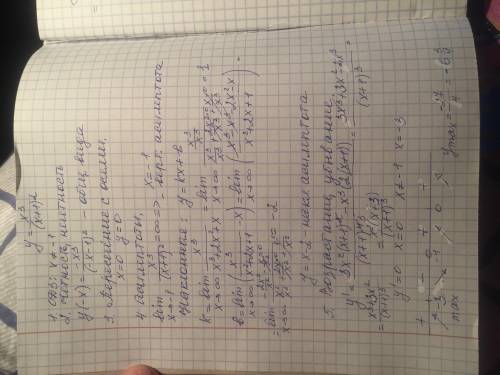 y = x³/(x+1)²
1. ОДЗ: x ≠ -1
2. Четность, нечетность
y(-x) = -x³/(-x+1)² - общ. вида
3. Пересечение с осями.
x=0 y=0
4. Асимптоты. x=-1
lim x→-1 x³/(x+1)² = ∞ => - верт. асимптота
Наклонные: y = kx+b
k = lim x→∞ x³/(x³+2x²+x) = lim x→∞ = 1
b = lim x→∞ (x³/(x²+2x+1) - x) = lim x→∞ (x³-x³-2x²-x)/(x²+2x+1) =
= lim x→∞ = -2
y = x-2 - накл. асимптота
5. Возрастание, убывание
y' = (3x²(x+1)² - x³(2(x+1)))/(x+1)⁴ = (3x³+3x²-2x³)/(x+1)³ =
= (x³+3x²)/(x+1)³ = x²(x+3)/(x+1)³
y'=0 x=0 x≠-1 x=-3
+ - + +
-3 -1 0
max y max = -27/4 = -6